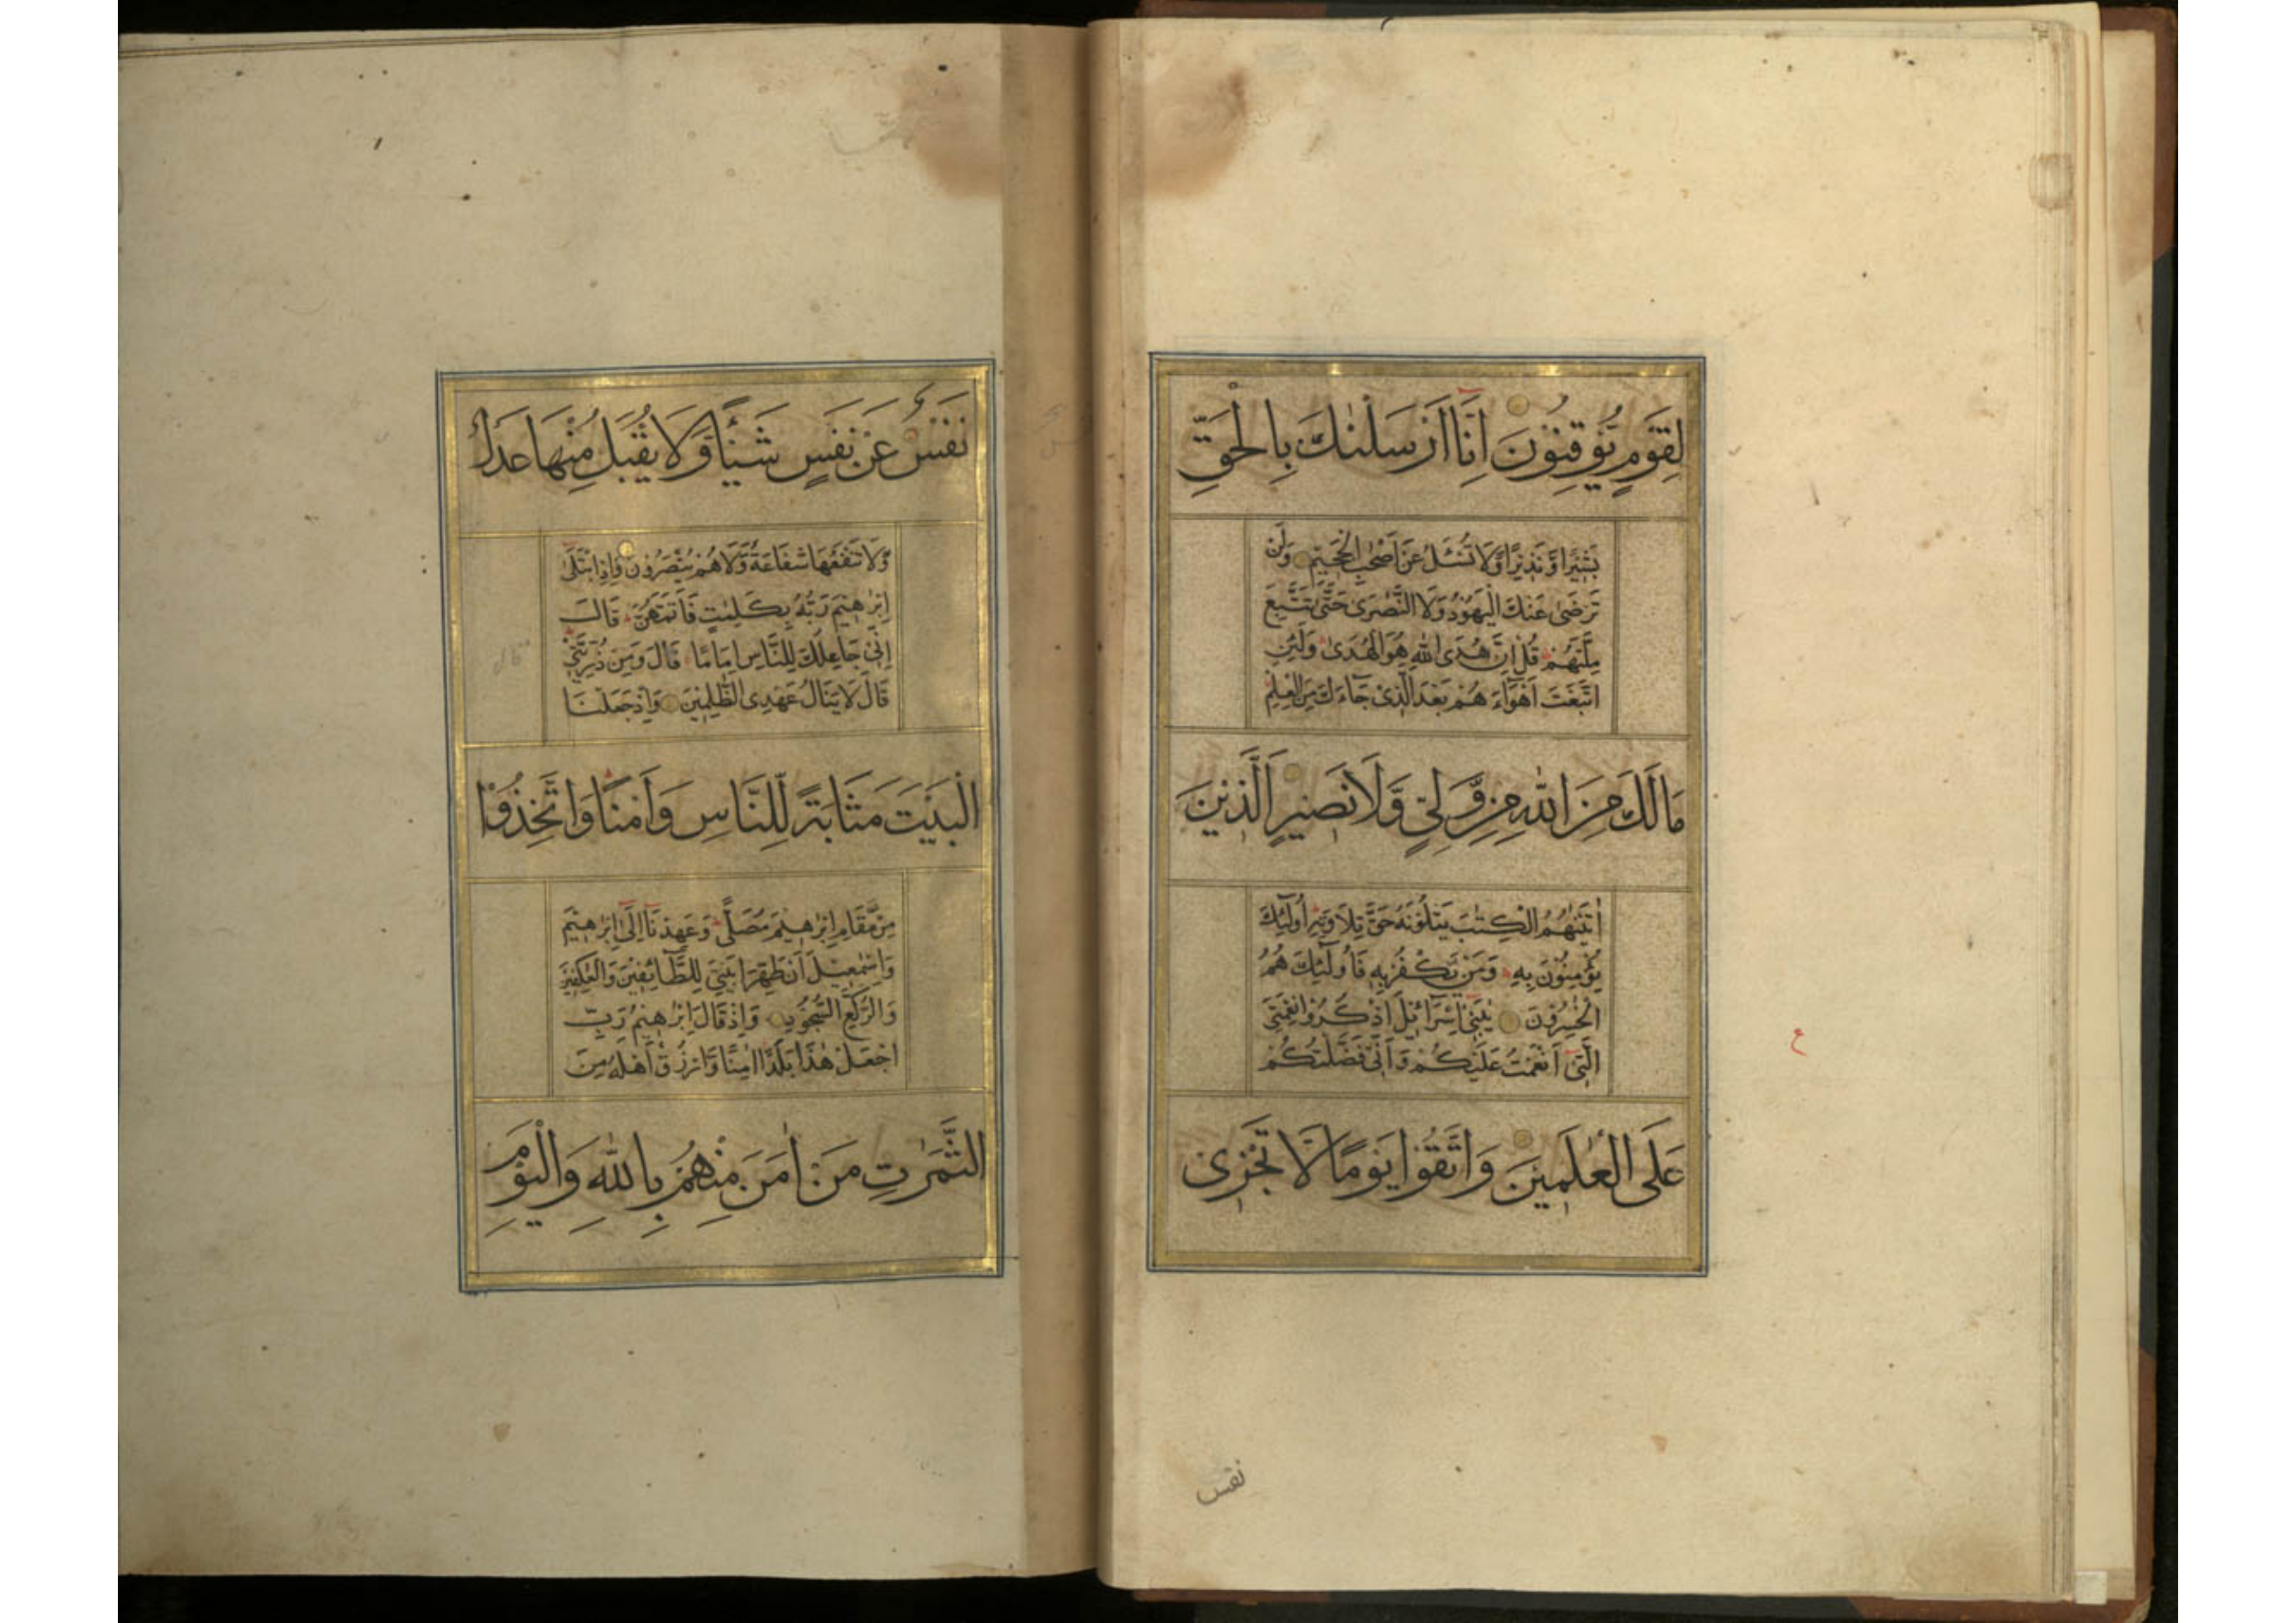 لِقَوْمٍ يُّوْقِنُوْنَ اِنَّا اَرْسَلْنٰكَ بِالْحَقِّ
بَشِيْرًا وَّنَذِيْرًا وَّلَا تُسْئَلُ عَنْ اَصْحٰبِ الْجَحِيْمِ وَلَنْ
تَرْضٰى عَنْكَ الْيَهُوْدُ وَلَا النَّصٰرٰى حَتّٰى تَتَّبِعَ
مِلَّتَهُمْ قُلْ اِنَّ هُدَى اللهِ هُوَ الْهُدٰى وَلَئِنِ
اتَّبَعْتَ اَهْوَآءَهُمْ بَعْدَ الَّذِىْ جَآءَكَ مِنَ الْعِلْمِ
مَا لَكَ مِنَ اللهِ مِنْ وَّلِىٍّ وَّلَا نَصِيْرٍ اَلَّذِيْنَ
اٰتَيْنٰهُمُ الْكِتٰبَ يَتْلُوْنَهٗ حَقَّ تِلَاوَتِهٖ اُولٰٓئِكَ
يُؤْمِنُوْنَ بِهٖ وَمَنْ يَّكْفُرْ بِهٖ فَاُولٰٓئِكَ هُمُ
الْخٰسِرُوْنَ يٰبَنِىْ اِسْرَآئِيْلَ اذْكُرُوْا نِعْمَتِىَ
الَّتِىْ اَنْعَمْتُ عَلَيْكُمْ وَاَنِّىْ فَضَّلْتُكُمْ
عَلَى الْعٰلَمِيْنَ وَاتَّقُوْا يَوْمًا لَّا تَجْزِىْ
ع
نفس
نَفْسٌ عَنْ نَفْسٍ شَيْئًا وَّلَا يُقْبَلُ مِنْهَا عَدْلٌ
وَّلَا تَنْفَعُهَا شَفَاعَةٌ وَّلَا هُمْ يُنْصَرُوْنَ وَاِذِ ابْتَلٰٓى
اِبْرٰهِيْمَ رَبُّهٗ بِكَلِمٰتٍ فَاَتَمَّهُنَّ قَالَ
اِنِّىْ جَاعِلُكَ لِلنَّاسِ اِمَامًا قَالَ وَمِنْ ذُرِّيَّتِىْ
قَالَ لَا يَنَالُ عَهْدِى الظّٰلِمِيْنَ وَاِذْ جَعَلْنَا
الْبَيْتَ مَثَابَةً لِّلنَّاسِ وَاَمْنًا وَاتَّخِذُوْا
مِنْ مَّقَامِ اِبْرٰهِيْمَ مُصَلًّى وَعَهِدْنَآ اِلٰٓى اِبْرٰهِيْمَ
وَاِسْمٰعِيْلَ اَنْ طَهِّرَا بَيْتِىَ لِلطَّآئِفِيْنَ وَالْعٰكِفِيْنَ
وَالرُّكَّعِ السُّجُوْدِ وَاِذْ قَالَ اِبْرٰهِيْمُ رَبِّ
اجْعَلْ هٰذَا بَلَدًا اٰمِنًا وَّارْزُقْ اَهْلَهٗ مِنَ
الثَّمَرٰتِ مَنْ اٰمَنَ مِنْهُمْ بِاللهِ وَالْيَوْمِ